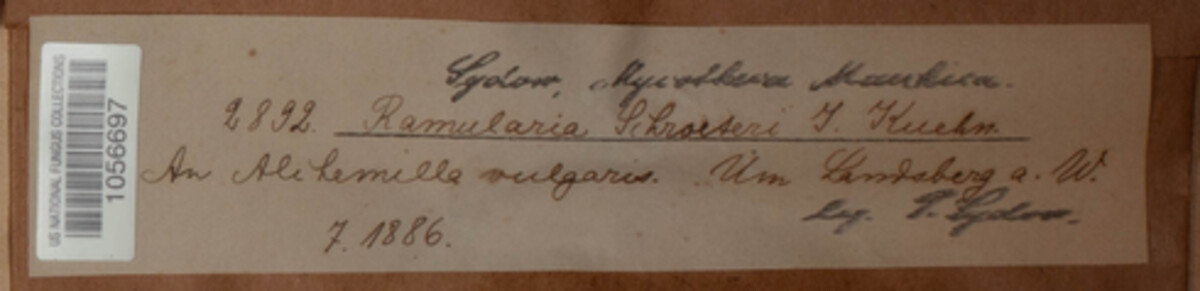 US NATIONAL FUNGUS COLLECTIONS
1056697
Sydow, Mycotheca Marchica.
2892. Ramularia Schroeteri J. Kuehn.
An Alchemilla vulgaris. Um Landsberg a. W.
leg. P. Sydow.
7. 1886.